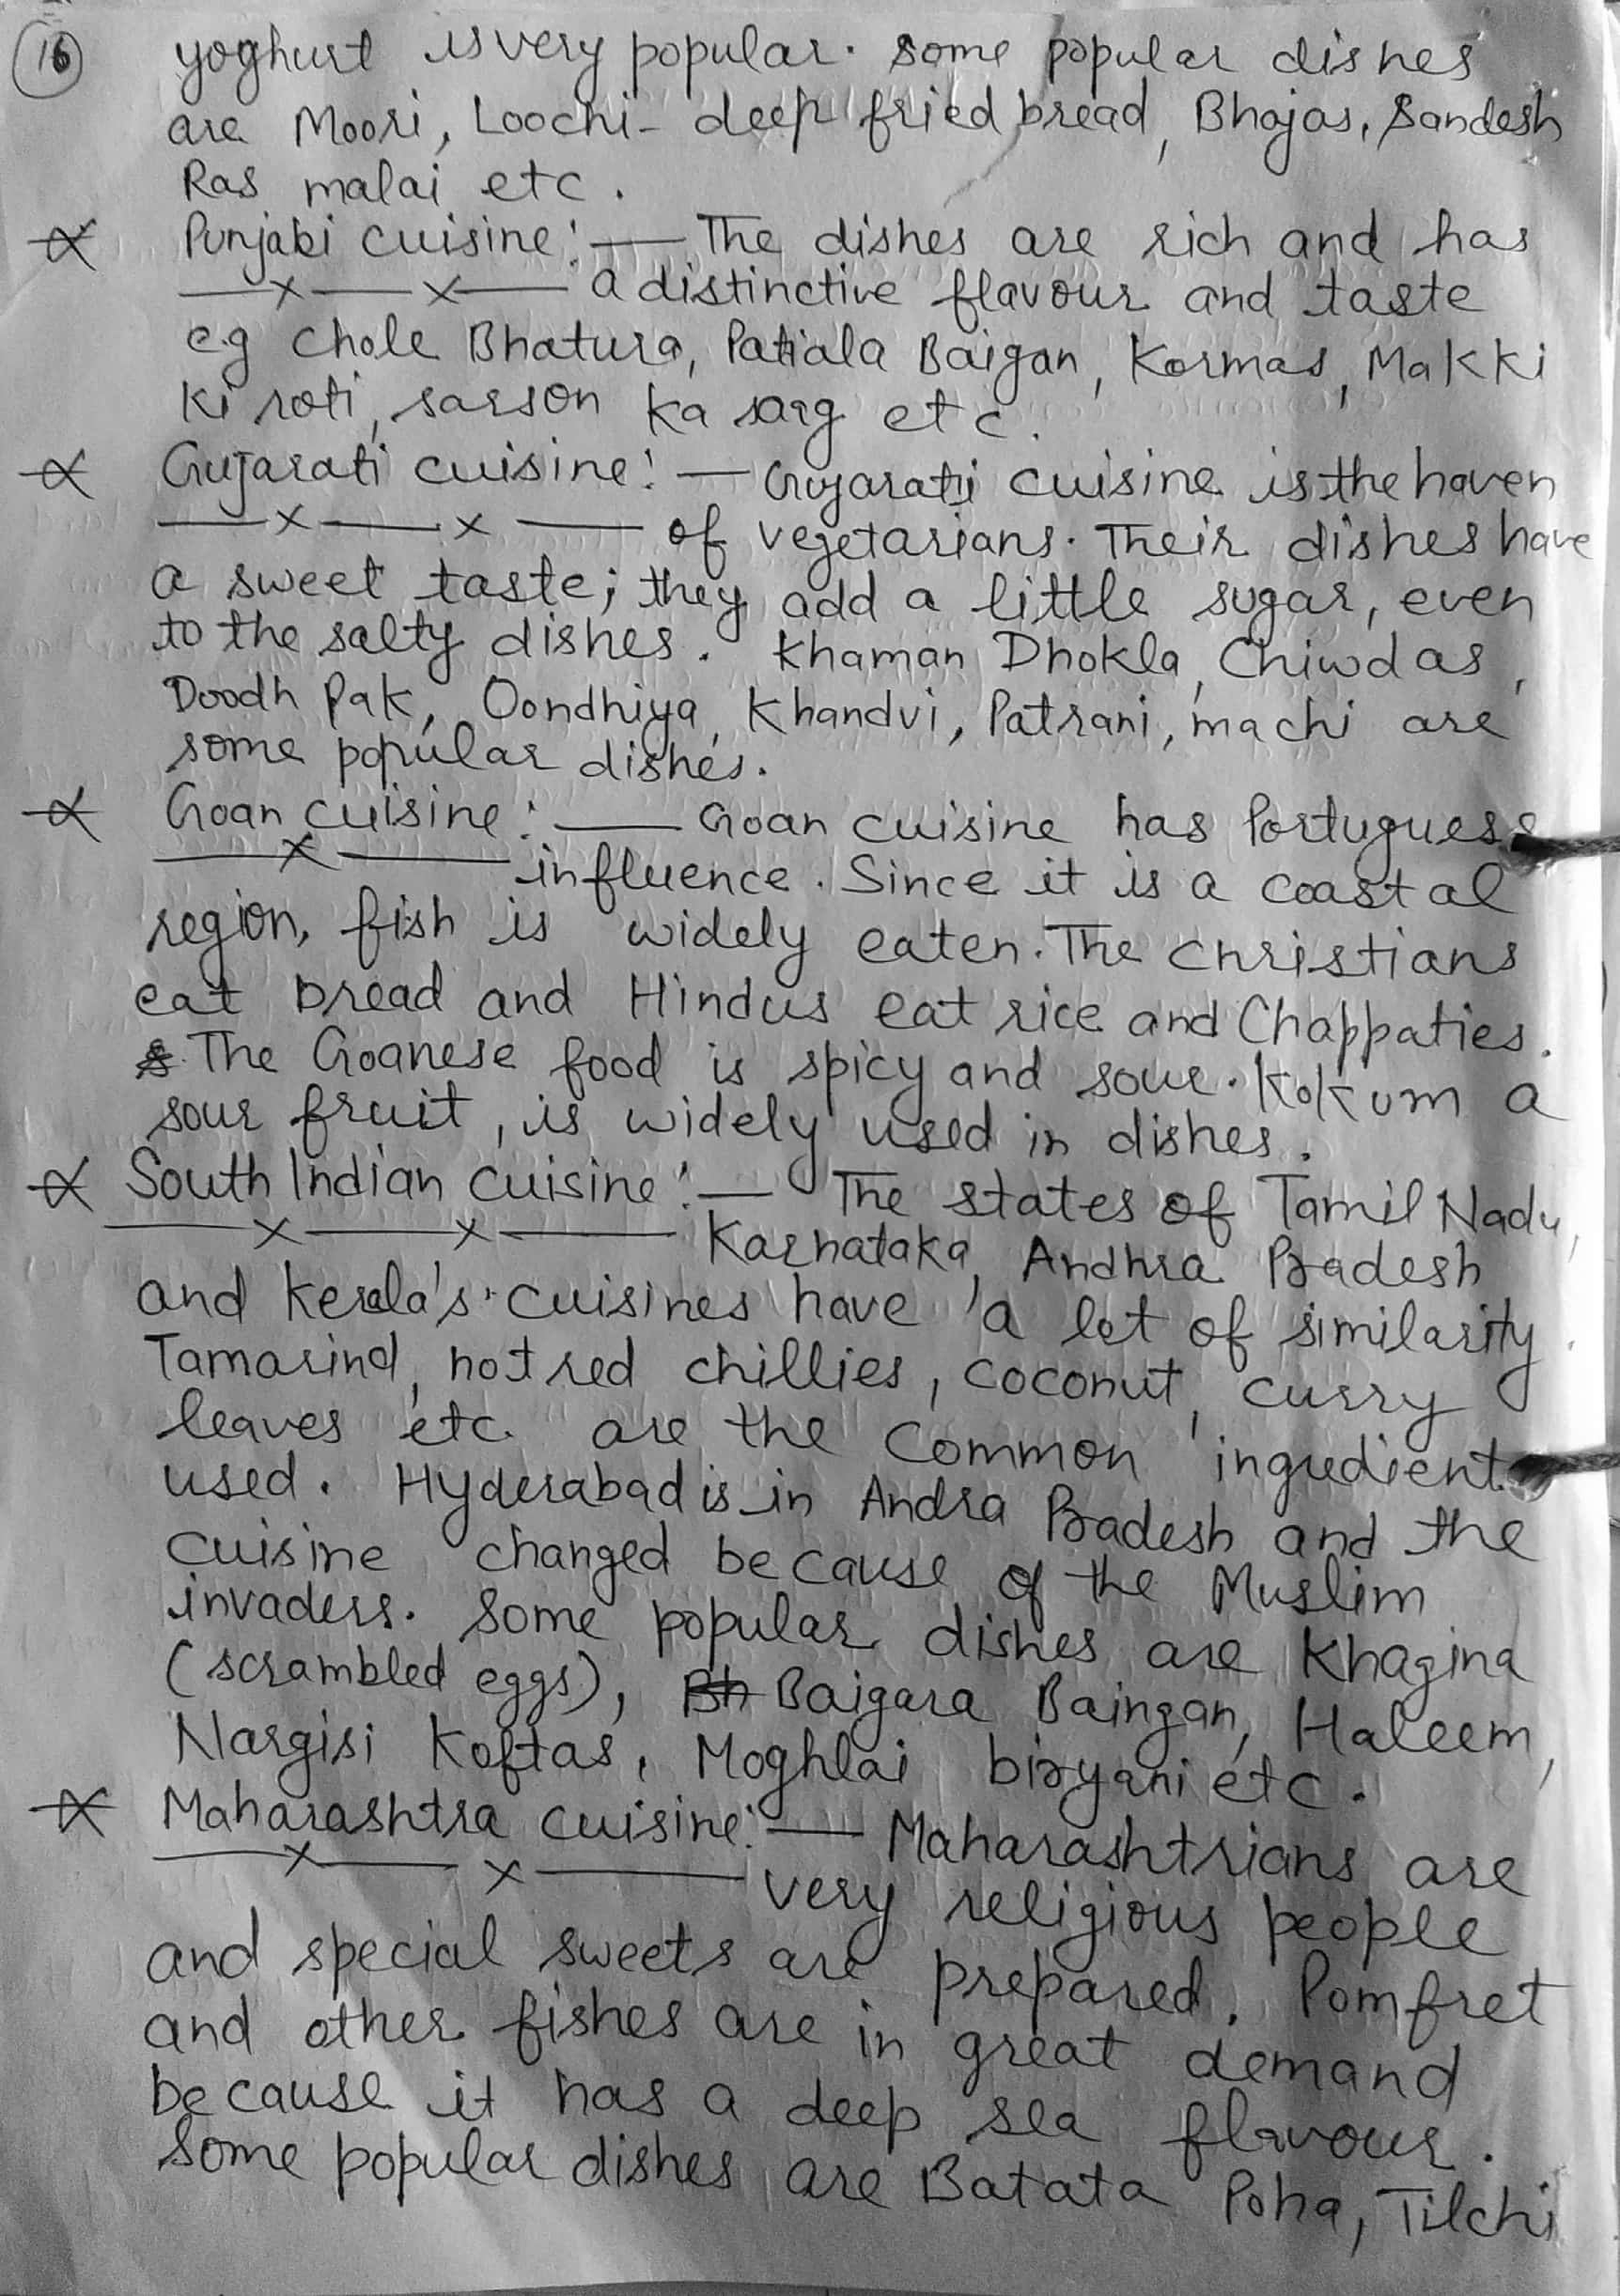 16
yoghurt is very popular. Some popular dishes
are Moori, Loochi - deep fried bread, Bhajas, Sandesh
Ras malai etc.
Punjabi cuisine:— The dishes are rich and has
a distinctive flavour and taste
e.g Chole Bhatura, Patiala Baigan, Kormas, Makki
Ki roti, sarson ka sarg etc.
Gujarati cuisine:— Gujarati cuisine is the haven
of vegetarians. Their dishes have
a sweet taste; they add a little sugar, even
to the salty dishes. Khaman Dhokla, Chiwdas,
Doodh Pak, Oondhiya, Khandvi, Patrani, machi are
some popular dishes.
Goan cuisine:— Goan cuisine has Portuguese
influence. Since it is a coastal
region, fish is widely eaten. The Christians
eat bread and Hindus eat rice and Chappaties.
The Goanese food is spicy and sour. Kokum a
sour fruit, is widely used in dishes.
South Indian cuisine:— The states of Tamil Nadu,
Karnataka, Andhra Pradesh
and Kerala's cuisines have a lot of similarity.
Tamarind, hot red chillies, coconut, curry
leaves etc. are the common ingredients
used. Hyderabad is in Andra Pradesh and the
cuisine changed because of the Muslim
invaders. Some popular dishes are Khagina
(scrambled eggs), Bh Baigara Baingan, Haleem,
Nargisi Koftas, Moghlai biryani etc.
Maharashtra cuisine:— Maharashtrians are
very religious people
and special sweets are prepared. Pomfret
and other fishes are in great demand
because it has a deep sea flavour.
Some popular dishes are Batata Poha, Tilchi